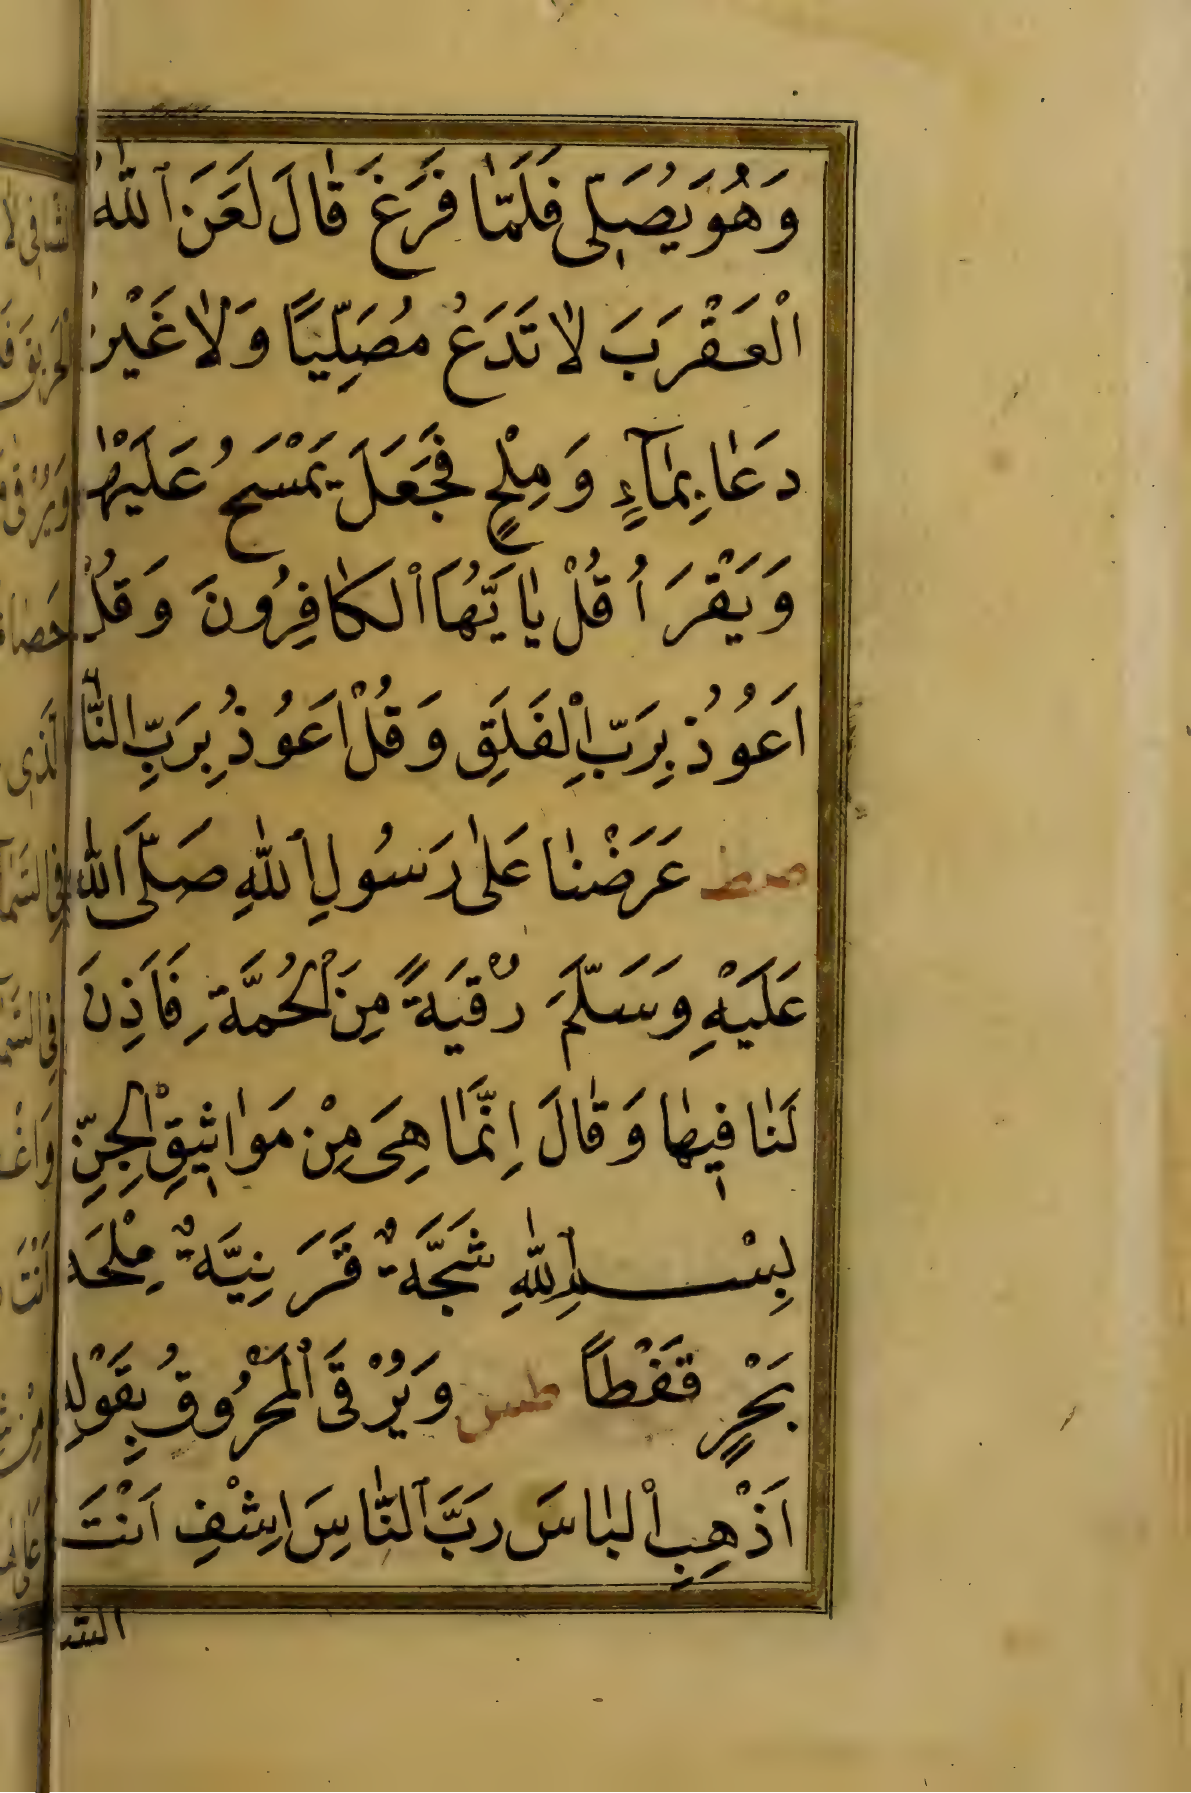 وَهُوَ يُصَلِّى فَلَمَّا فَرَغَ قَالَ لَعَنَ ٱللّٰهُ
الْعَقْرَبَ لَا تَدَعُ مُصَلِّيًا وَلَا غَيْرَ
دَعَا بِمَآءٍ وَمِلْحٍ فَجَعَلَ يَمْسَحُ عَلَيْهَا
وَيَقْرَاُ قُلْ يَا يَّهَا ٱلْكَافِرُونَ وَقُلْ
اَعُوذُ بِرَبِّ ٱلْفَلَقِ وَقُلْ اَعُوذُ بِرَبِّ النَّا
صط عَرَضْنَا عَلٰى رَسُولِ ٱللّٰهِ صَلَّى اللّٰه
عَلَيْهِ وَسَلَّمَ رُقْيَةً مِنَ الْحُمَّةِ فَاَذِنَ
لَنَا فِيهَا وَقَالَ اِنَّمَا هِىَ مِنْ مَوَاثِيقِ الْجِنِّ
بِسْمِ ٱللّٰهِ شَجَّةٌ قَرَنِيَّةٌ مِلْحَة
بَحْرٍ قَفْطًا طس وَيُرْقَى ٱلْمَحْرُوقُ بِقَوْلِهِ
اَذْهِبِ ٱلْبَاسَ رَبَّ ٱلنَّاسِ اِشْفِ اَنْتَ
الشا